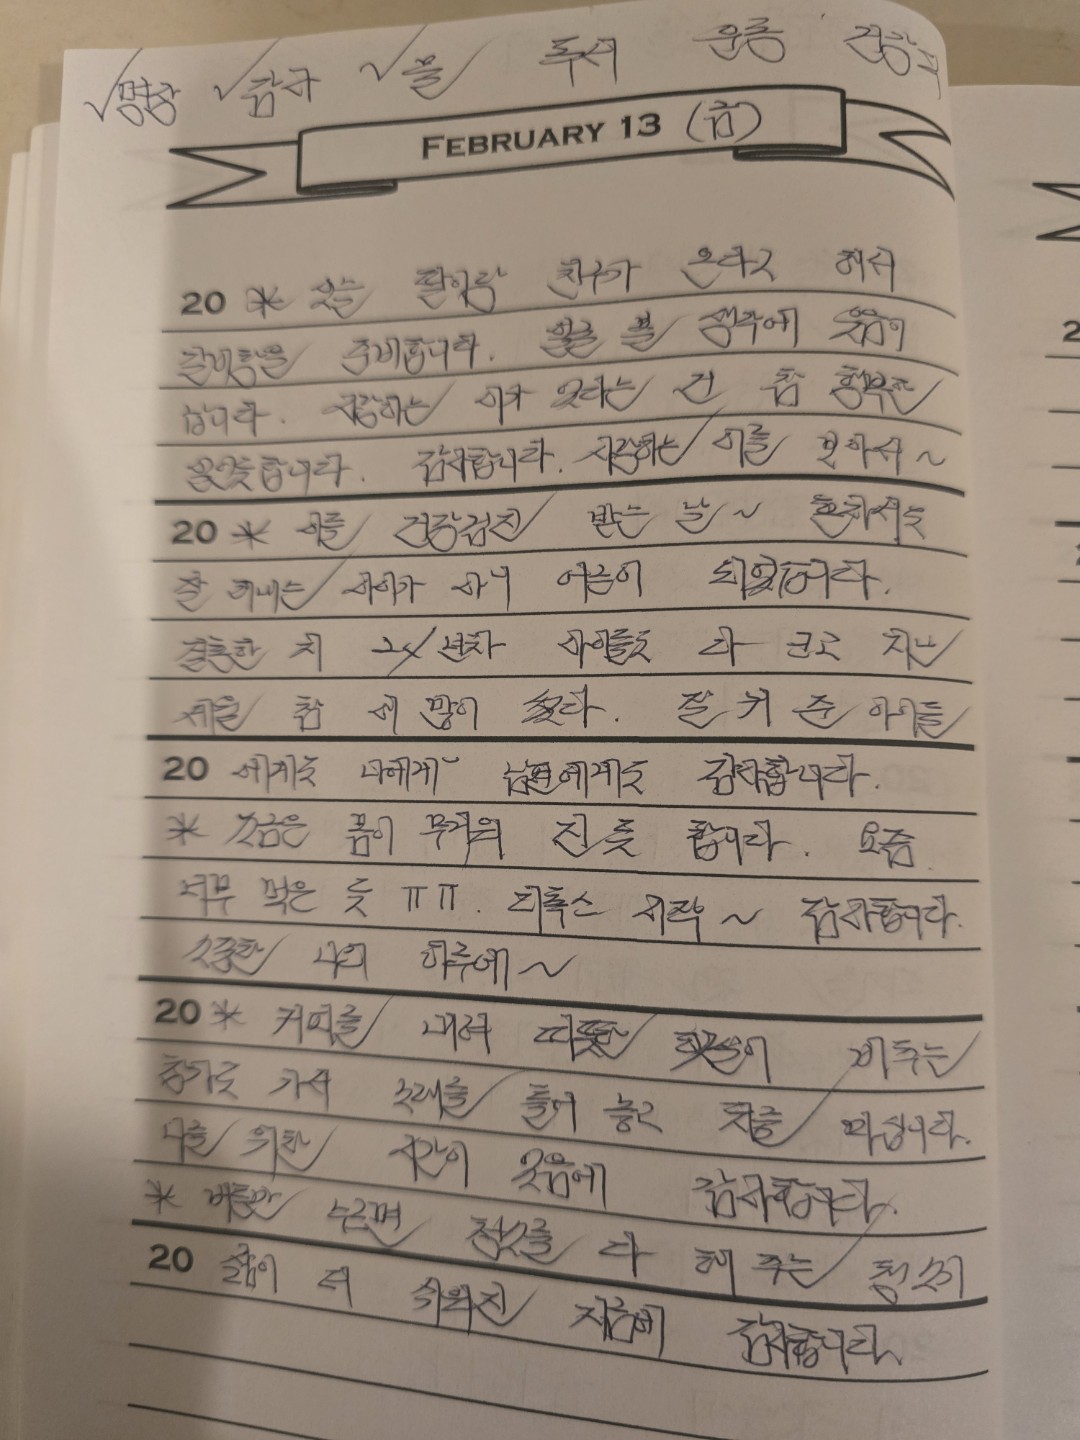 √명상 √감사 √물 독서 운동 건강식
FEBRUARY 13 (금)
20 * 오늘 딸이랑 친구가 온다고 해서
갈비탕을 준비합니다. 얼굴 볼 생각에 웃음이
납니다. 사랑하는 이가 있다는 건 참 행복한
일인듯 합니다. 감사합니다. 사랑하는 이를 보아서~
20 * 이를 건강검진 받는 날~ 혼자서도
잘 해내는 아이가 어른이 되었습니다.
결혼한 지 24년차 아이들도 다 크고 지난
세월 참 많이 왔다. 잘 커 준 아이들
20 에게도 나에게 남편에게도 감사합니다.
* 조금은 몸이 무거워 진 듯 합니다. 요즘
너무 먹은 듯 ㅠㅠ. 디톡스 시작~ 감사합니다.
소중한 나의 하루에~
20 * 커피를 내려 따뜻한 햇살이 비추는
창가로 가서 노래를 틀어 놓고 차를 마십니다.
나를 위한 시간이 있음에 감사합니다.
* 버튼만 누르면 청소를 다 해 주는 청소기
20 삶이 더 쉬워진 지금에 감사합니다.